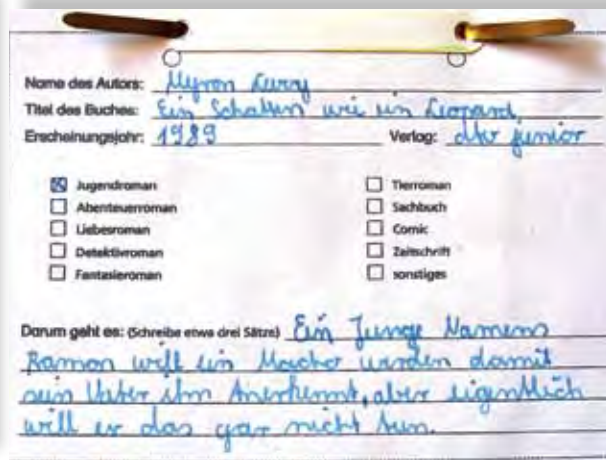 Name des Autors: Myron Levoy
Titel des Buches: Ein Schatten wie ein Leopard
Erscheinungsjahr: 1989 Verlag: dtv junior
Jugendroman Tierroman
Abenteuerroman Sachbuch
Liebesroman Comic
Detektivroman Zeitschrift
Fantasieroman sonstiges
Darum geht es: (Schreibe etwa drei Sätze) Ein Junge Namens
Ramon will ein Macho werden damit
sein Vater ihn Anerkennt, aber eigentlich
will er das gar nicht tun.